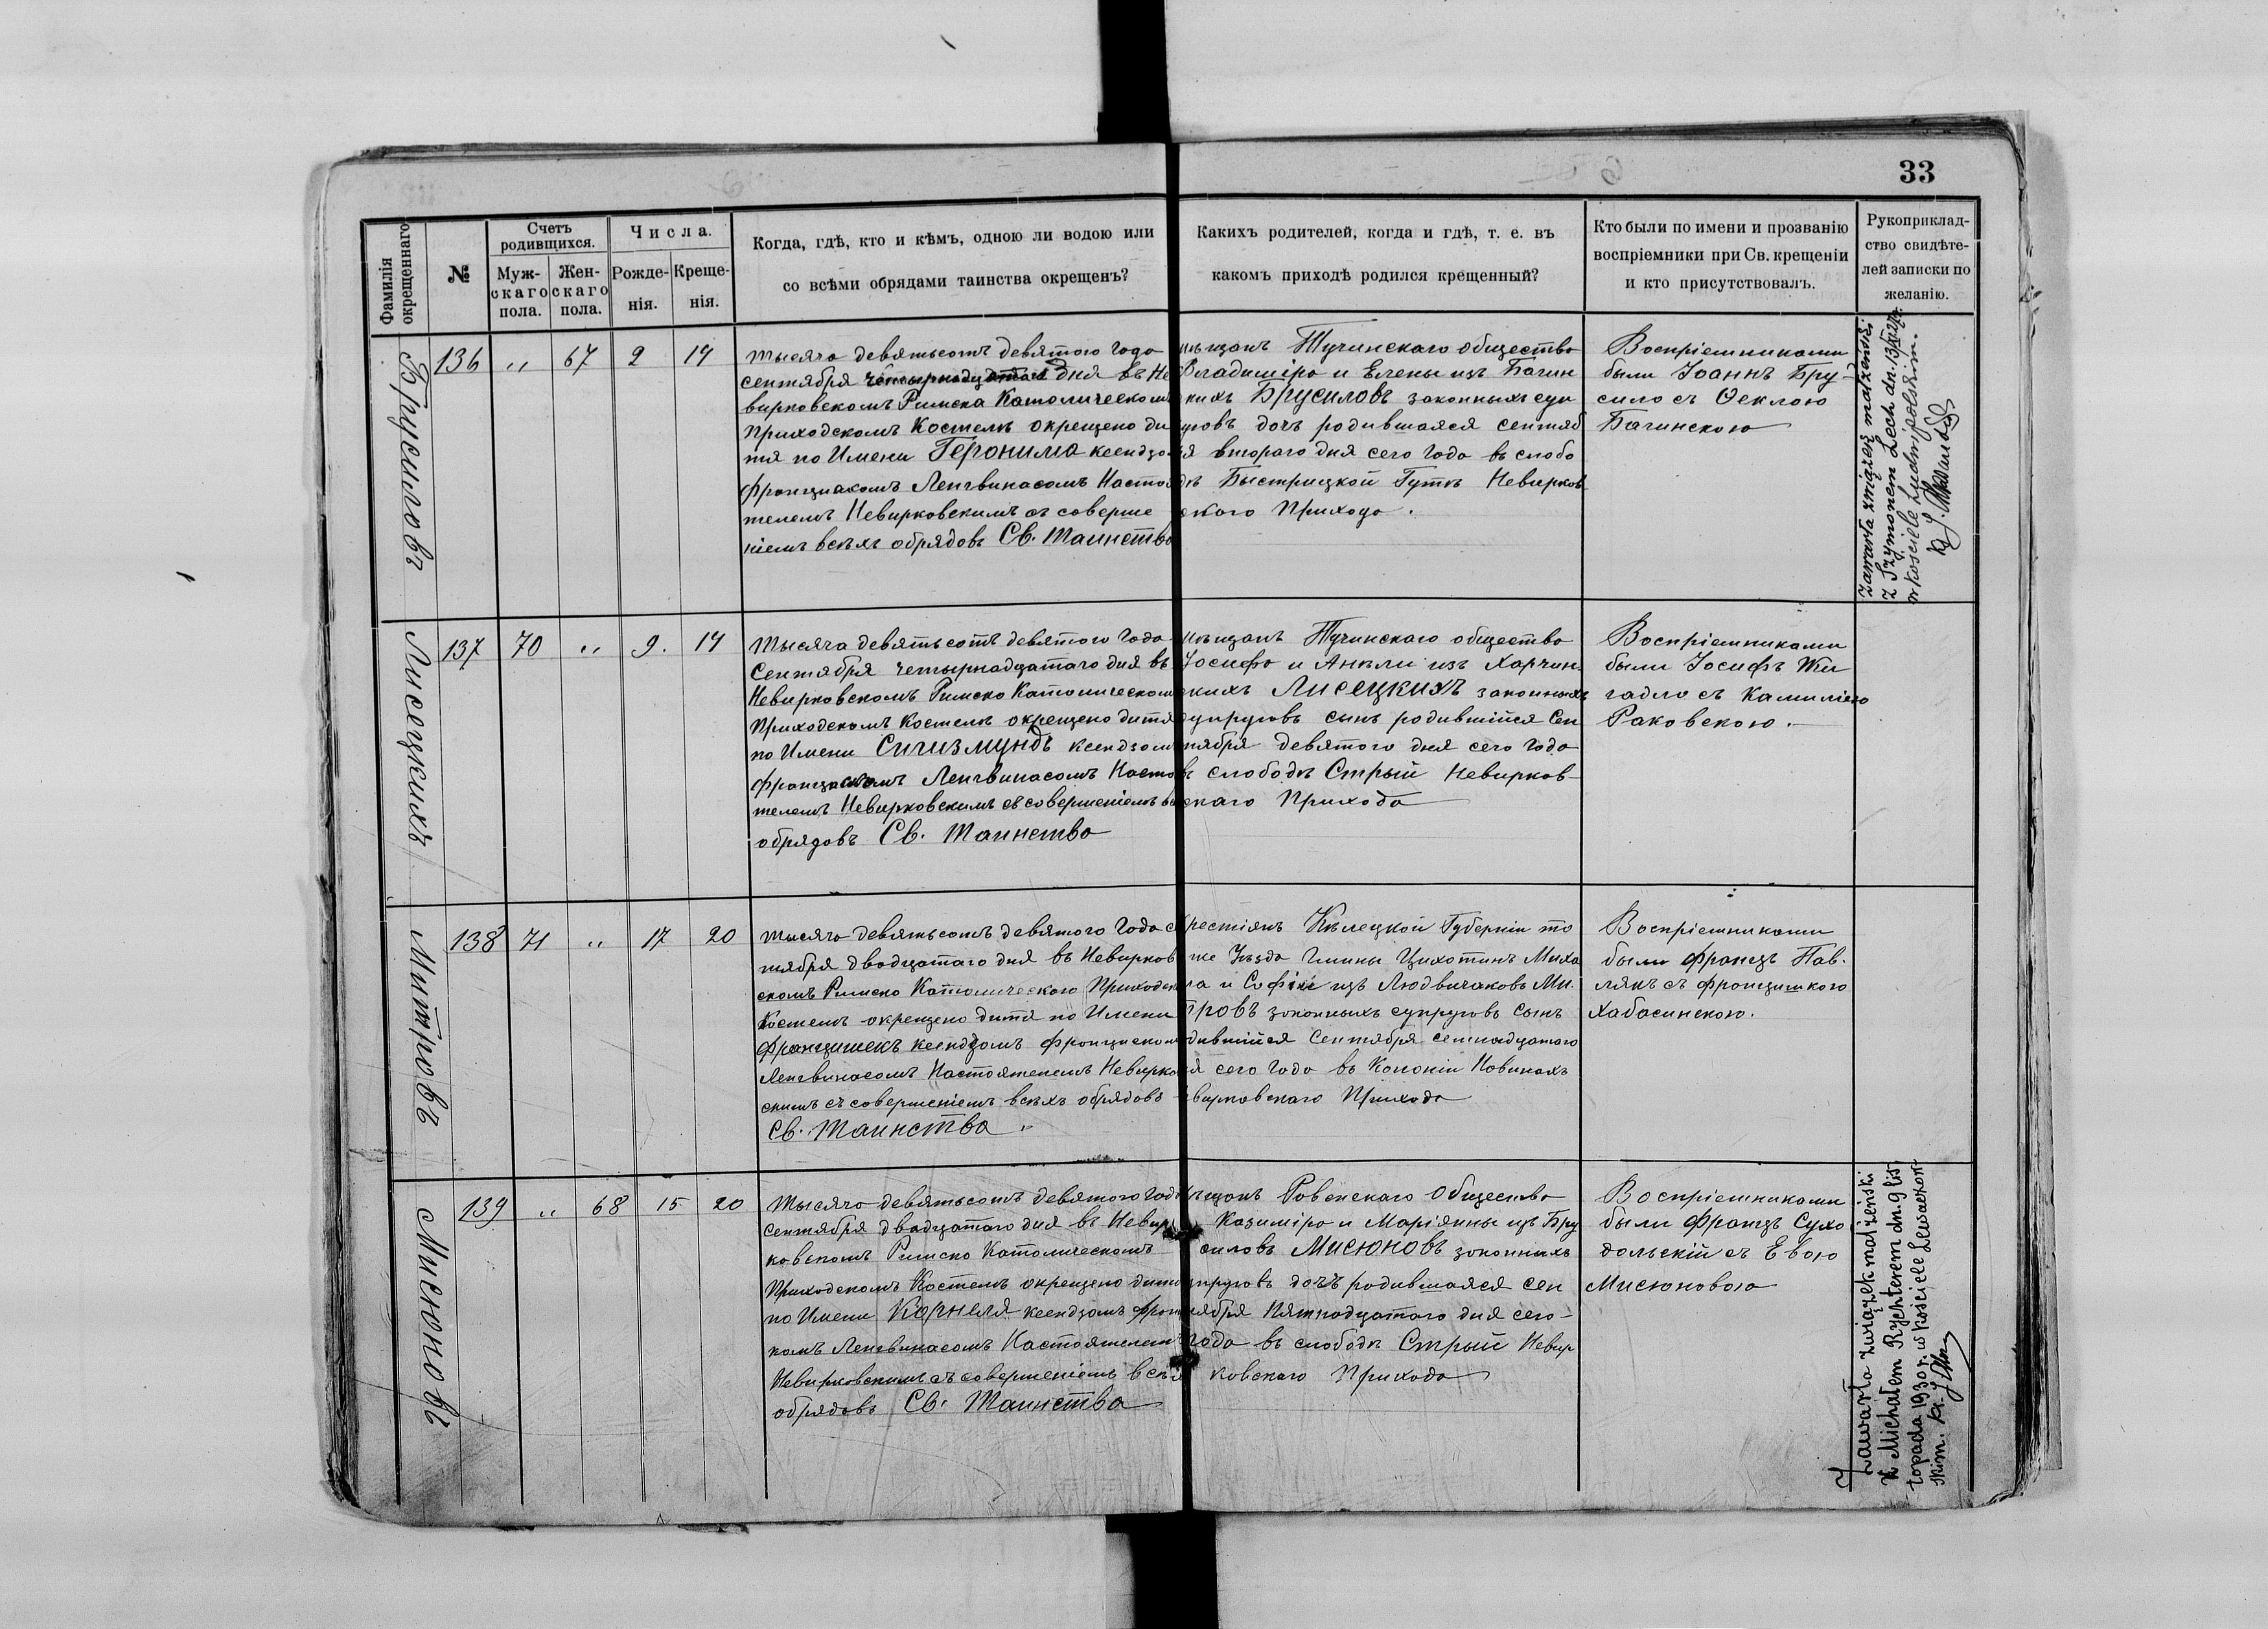 33
Фамилія окрещеннаго
№
Счетъ родившихся.
Муж-скаго пола.
Жен-скаго пола.
Числа.
Рожде-нія.
Креще-нія.
Когда, гдѣ, кто и кѣмъ, одною ли водою или
со всѣми обрядами таинства окрещенъ?
Какихъ родителей, когда и гдѣ, т. е. въ
какомъ приходѣ родился крещенный?
Кто были по имени и прозванію
воспріемники при Св. крещеніи
и кто присутствовалъ.
Рукоприклад-
ство свидѣте-
лей записки по
желанію.
Брусиловъ
136 " 67 2 14
Тысяча девятьсотъ девятого года
сентября четырнадцатаго дня въ Не
вирковскомъ Римско Католическом
Приходскомъ Костелѣ окрещено ди
тя по Имени Геронима ксендзом
Францискомъ Ленгвинасомъ Настоя
телемъ Невирковскимъ съ соверше
ніемъ всѣхъ обрядовъ Св. Таинства
мѣщанъ Тучинскаго общества
Владиміра и Елены изъ Багин
скихъ Брусиловъ законныхъ суп
руговъ дочь родившаяся сентяб
ря второго дня сего года въ слобо
дѣ Быстрицкой Гутѣ Невирков
ского Прихода.
Воспріемниками
были Іоаннъ Бру-
сило съ Ѳеклою
Багинскою
Zawarła związek małżeński
z Szymonem Lech dn. 13
w kościele Ludwipolskim.
Лисецкихъ
137 70 " 9. 14
Тысяча девятьсотъ девятого года
Сентября четырнадцатаго дня въ
Невирковскомъ Римско Католическом
Приходскомъ Костелѣ окрещено дитя
по Имени Сигизмундъ ксендзом
Францискомъ Ленгвинасомъ Настоя
телемъ Невирковскимъ съ совершеніемъ вс
обрядовъ Св. Таинства
мѣщанъ Тучинскаго общества
Іосифа и Анели изъ Харчин
скихъ Лисецкихъ законныхъ
супруговъ сынъ родившійся Сен
тября девятого дня сего года
въ слободѣ Стрый Невирков-
скаго Прихода
Воспріемниками
были Іосифъ Жи
гадло съ Камиліею
Раковскою.
Митровъ
138 71 " 17 20
Тысяча девятьсотъ девятого года се
нтября двадцатаго дня въ Невирков
скомъ Римско Католическаго Приходск
Костелѣ окрещено дитя по Имени
Францишекъ ксендзомъ Франциском
Ленгвинасомъ Настоятелемъ Невирков
скимъ съ совершеніемъ всѣхъ обрядовъ
Св. Таинства.
крестіянъ Кѣлецкой Губерніи то
же Уѣзда Гмины Миха
ла и Софіи изъ Людвичаковъ Ми.
тровъ законныхъ супруговъ сынъ
родившійся Сентября семнадцатого
дня сего года въ Колоніи Новинахъ
Невирковскаго Прихода
Воспріемниками
были Францъ Пав.
лякъ съ Францишкою
Хабасинскою.
Мисюновъ
139 " 68 15 20
Тысяча девятьсотъ девятого года
сентября двадцатаго дня въ Невир
ковскомъ Римско Католическомъ
Приходскомъ Костелѣ окрещено дитя
по Имени Корнеля ксендзомъ Франц
комъ Ленгвинасомъ Настоятелем
Невирковскимъ съ совершеніемъ всѣх
обрядовъ Св. Таинства
мѣщанъ Ровенскаго Общества
Казиміра и Маріянны изъ Бру
силовъ Мисюновъ законныхъ
супруговъ дочь родившаяся сен
тября Пятнадцатаго дня сего-
года въ слободѣ Стрый Невир
ковскаго Прихода
Воспріемниками
были Францъ Сухо
дольскій съ Евою
Мисюновою
Zawarła związek małżeński
z Michałem Rychterem dn. 9 lis-
topada 1930 r. w kościele Lewaczow-
skim. ks.